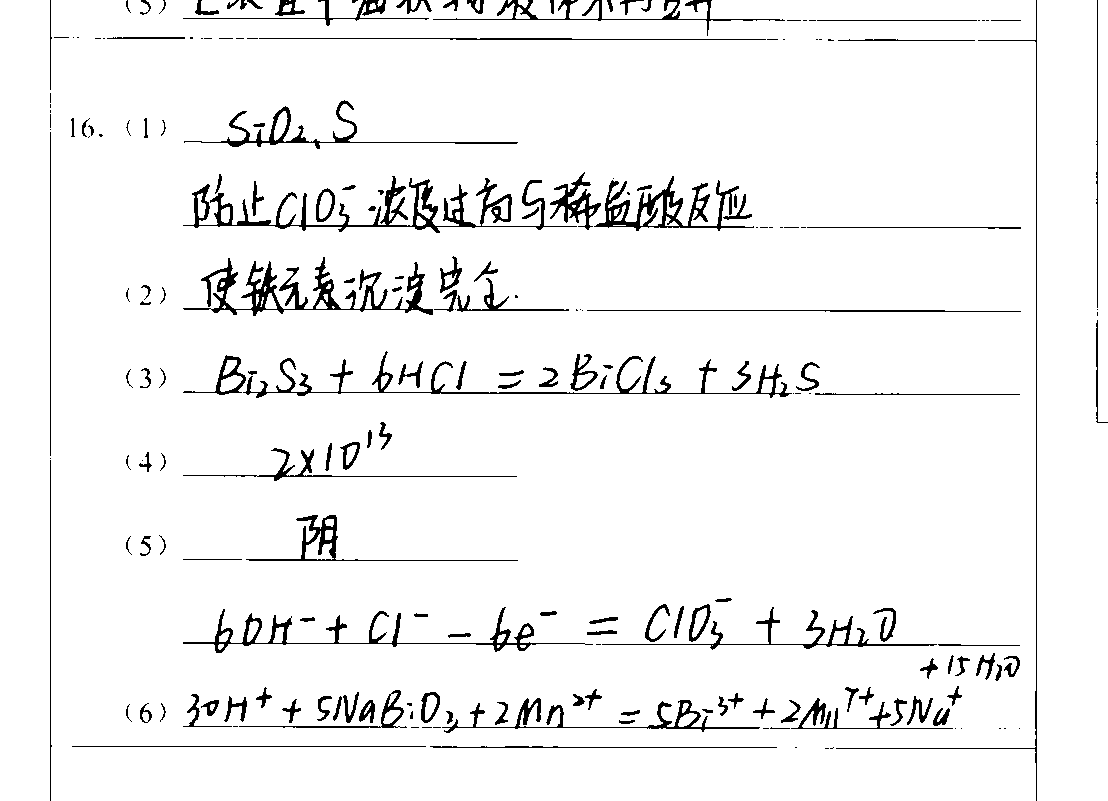 16.（1） SiO₂、S
防止ClO₃⁻浓度过高与稀盐酸反应
（2） 使铁元素沉淀完全.
（3） Bi₂S₃ + 6HCl = 2BiCl₃ + 3H₂S
（4） 2×10¹³
（5） 阴
6OH⁻ + Cl⁻ − 6e⁻ = ClO₃⁻ + 3H₂O
（6） 30H⁺ + 5NaBiO₃ + 2Mn²⁺ = 5Bi³⁺ + 2Mn⁷⁺ + 5Na⁺ + 15H₂O